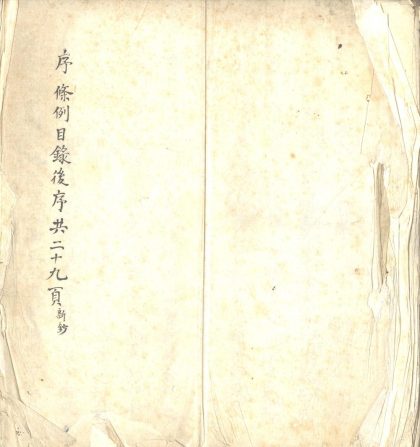 序條例目錄後序共二十九頁新鈔